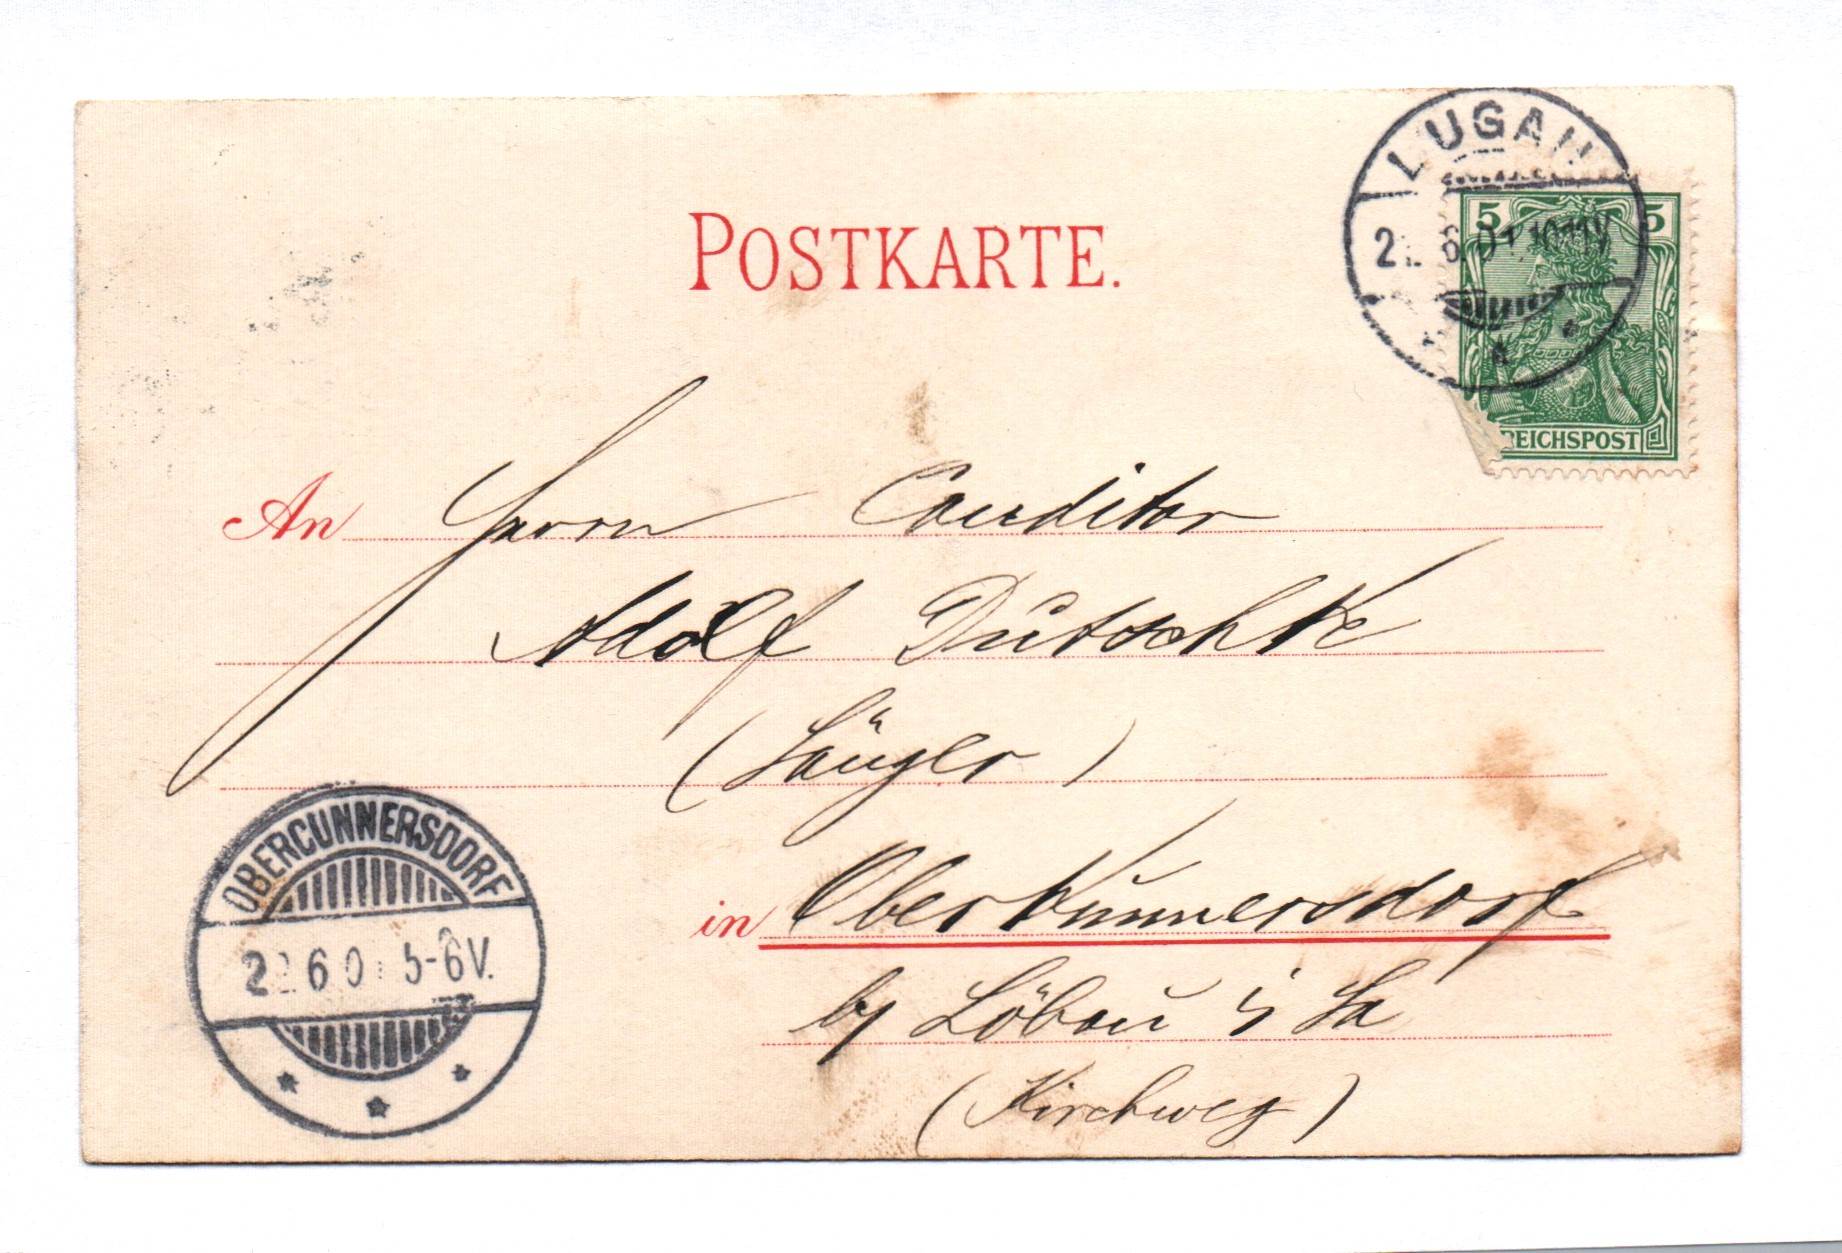 LUGAU
5 5
6.01.10-11V
REICHSPOST
POSTKARTE.
An Herrn Conditor
Adolf Dutschke
(Sänger)
in Oberkunnersdorf
by Löbau i Sa
(Kirchweg)
OBERCUNNERSDORF
6 0 5-6V.